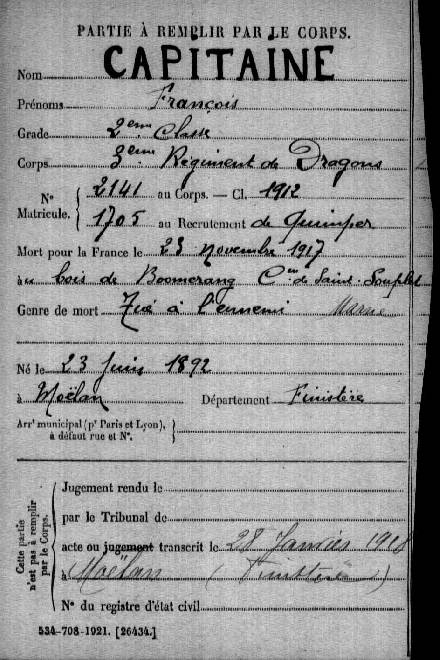 PARTIE À REMPLIR PAR LE CORPS.
Nom CAPITAINE
Prénoms François
Grade 2eme Classe
Corps 3eme Régiment de Dragons
N° Matricule. { 2141 au Corps. — Cl. 1912
1705 au Recrutement de Quimper
Mort pour la France le 23 novembre 1917
au bois de Boomerang Cne de Saint-Souplet
Genre de mort Tué à l'ennemi Marne
Né le 23 juin 1892
à Moëlan Département Finistère
Arrt municipal (pr Paris et Lyon),
à défaut rue et N°.
Cette partie n'est pas à remplir par le Corps.
Jugement rendu le
par le Tribunal de
acte ou jugement transcrit le 28 Janvier 1918
à Moëlan (Finistère)
N° du registre d'état civil
534-708-1921. [26434.]